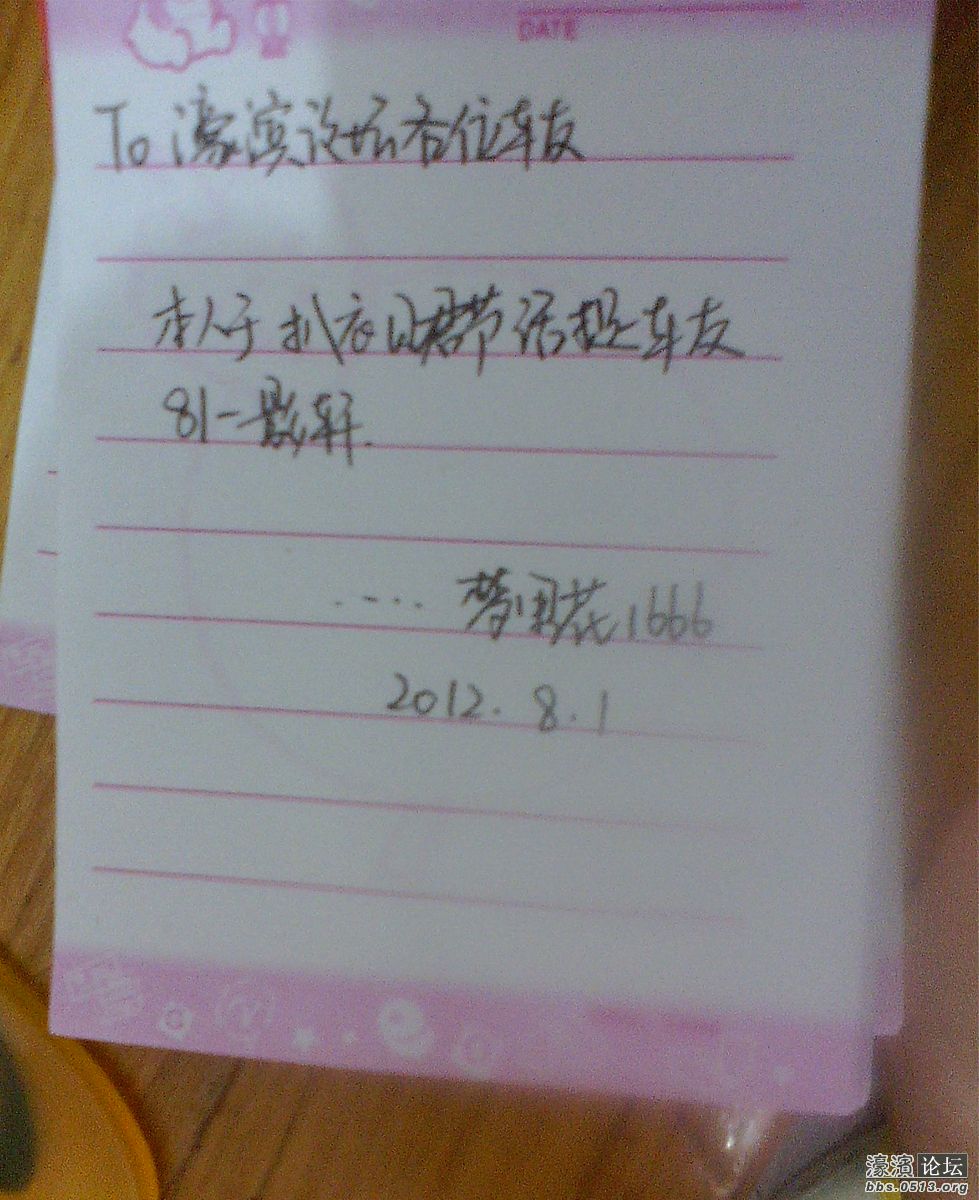 DATE
To 濠滨论坛各位车友
本人于 八一 节 活捉车友
81一影轩.
..... 梦里花1666
2012.8.1
濠滨论坛
bbs.0513.org